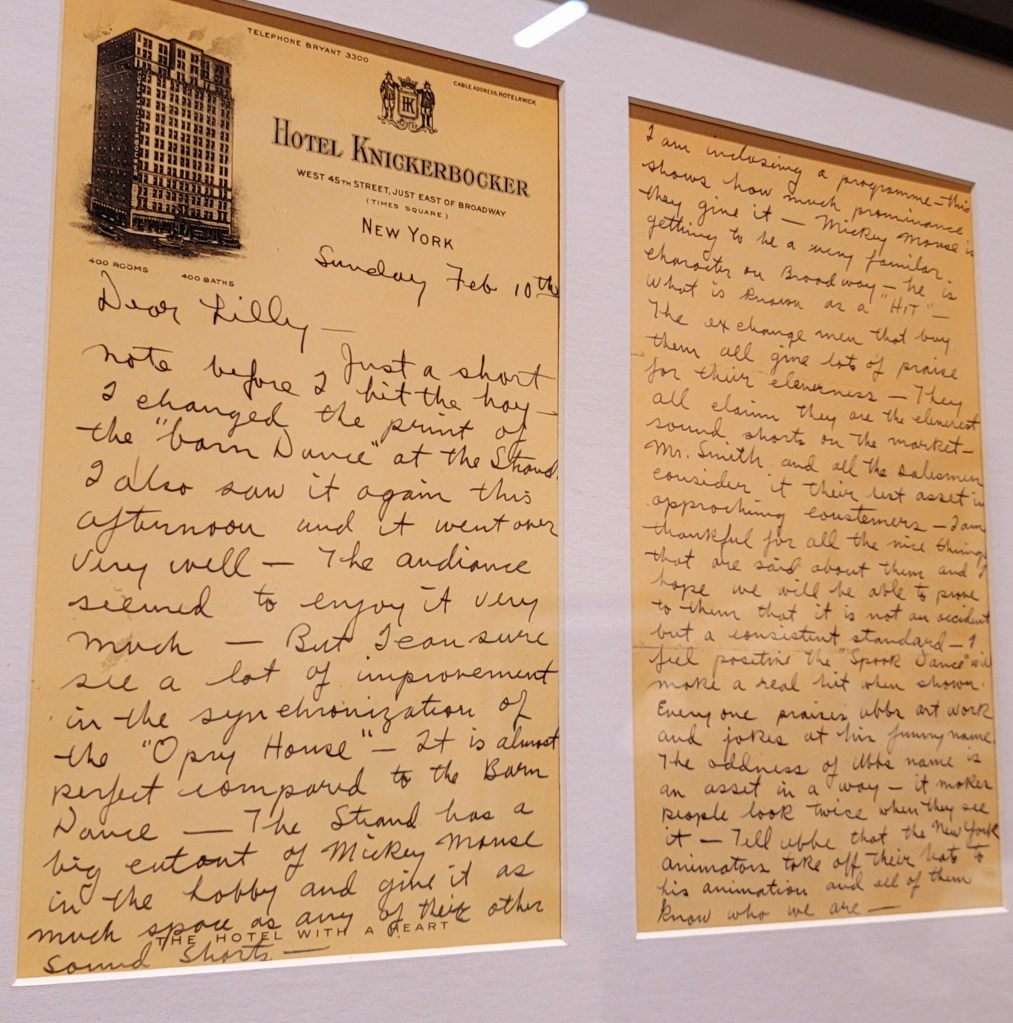 TELEPHONE BRYANT 3300
CABLE ADDRESS, HOTELKNICK
HK
HOTEL KNICKERBOCKER
WEST 45TH STREET, JUST EAST OF BROADWAY
(TIMES SQUARE)
NEW YORK
400 ROOMS 400 BATHS
Sunday Feb 10th
Dear Lilly —
Just a short
note before I hit the hay —
I changed the print of
the "barn Dance" at the Strand.
I also saw it again this
afternoon and it went over
very well — The audiance
seemed to enjoy it very
much — But I can sure
see a lot of improvement
in the synchronization of
the "Opry House" — It is almost
perfect compared to the Barn
Dance — The Strand has a
big cutout of Mickey Mouse
in the lobby and give it as
much space as any of their other
THE HOTEL WITH A HEART
sound shorts —
I am inclosing a programme — this
shows how much prominance
they give it — Mickey Mouse is
getting to be a very familar
character on Broadway — he is
what is known as a "HIT" —
The exchange men that buy
them all give lots of praise
for their cleverness — They
all claim they are the cleverest
sound shorts on the market —
Mr. Smith and all the salesmen
consider it their best asset in
approching costemers — I am
thankful for all the nice things
that are said about them and I
hope we will be able to prove
to them that it is not an accident
but a consistent standard — I
feel positive the "Spook Dance" will
make a real hit when shown.
Everyone praises ubbs art work
and jokes at his funny name.
The oddness of Ubbs name is
an asset in a way — it makes
people look twice when they see
it — Tell ubbe that the New York
animators take off their hats to
his animation and all of them
know who we are —